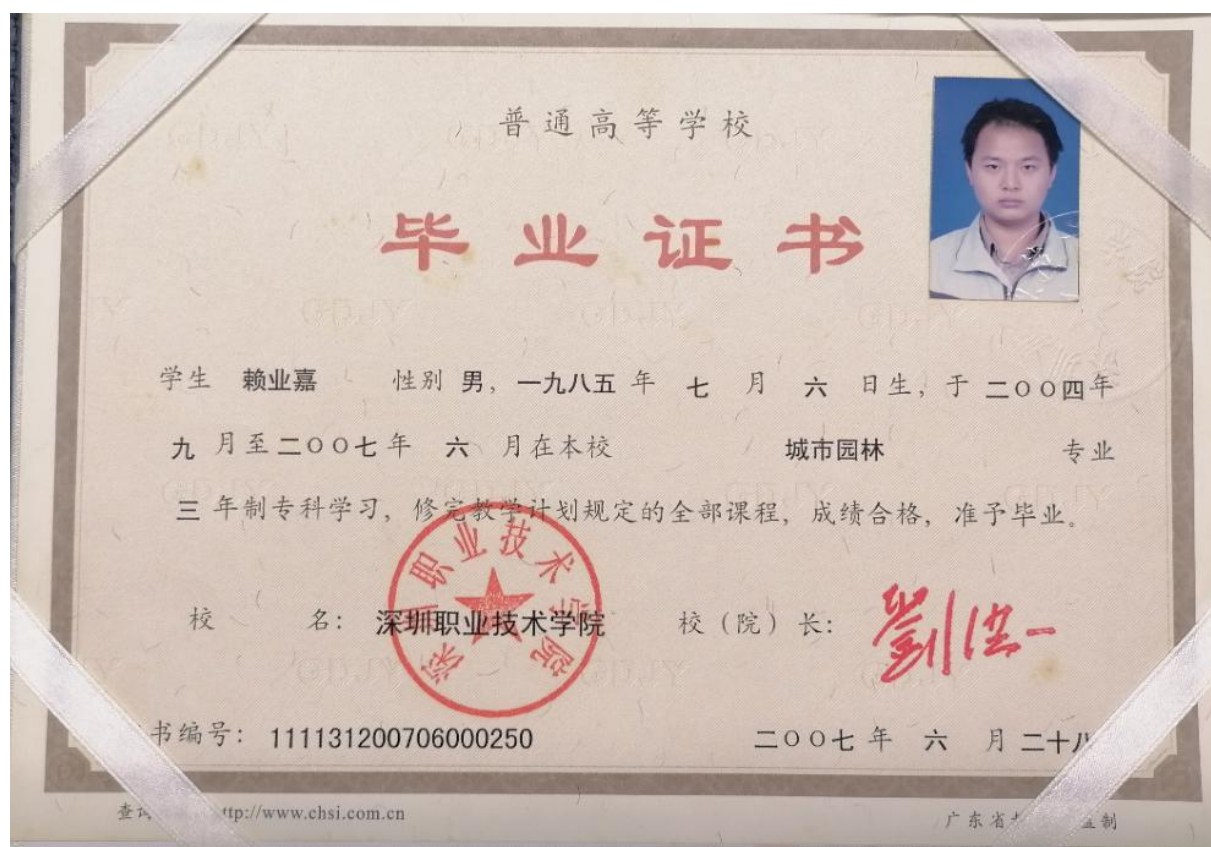 普通高等学校
毕业证书
学生 赖业嘉 性别 男, 一九八五 年 七 月 六 日生, 于 二〇〇四年
九 月至二〇〇七年 六 月在本校 城市园林 专业
三 年制专科学习, 修完教学计划规定的全部课程, 成绩合格, 准予毕业。
校 名: 深圳职业技术学院 校(院)长: 劉洪一
深圳职业技术学院
书编号: 111131200706000250 二〇〇七 年 六 月 二十八
查询 ttp://www.chsi.com.cn 广东省 监制
GDJY